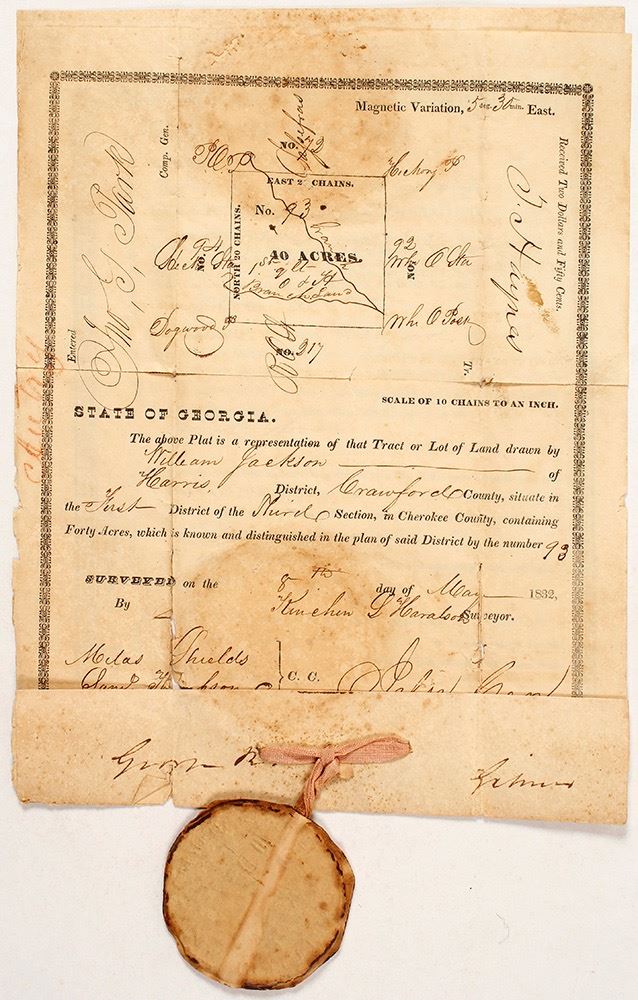 Magnetic Variation, 5 deg. 30 min. East.
NO. 72
EAST 20 CHAINS.
No. 93
40 ACRES.
NORTH 20 CHAINS.
1st
Branch
Hickory P
NO. 94
92
NO.
Whe O Sta
Dogwood P
Whe O Post
NO. 217
Entered
Jno, G Park
Comp. Gen.
Received Two Dollars and Fifty Cents.
T. Haynes
Tr.
SCALE OF 10 CHAINS TO AN INCH.
STATE OF GEORGIA.
The above Plat is a representation of that Tract or Lot of Land drawn by
William Jackson of
Harris District, Crawford County, situate in
the First District of the Third Section, in Cherokee County, containing
Forty Acres, which is known and distinguished in the plan of said District by the number 93
SURVEYED on the 8th day of May 1832,
By Kinchen L Haralson Surveyor.
Milas Shields
C. C.
George R. Gilmer